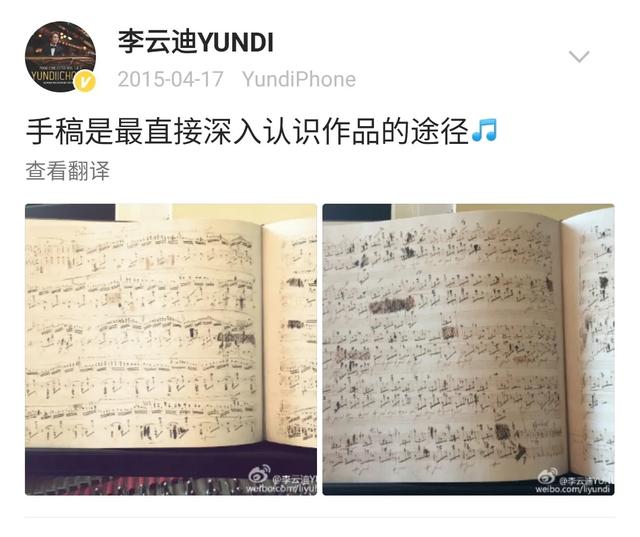 李云迪YUNDI
2015-04-17 YundiPhone
手稿是最直接深入认识作品的途径🎵
查看翻译
@李云迪YU
weibo.com/liyundi
@李云迪YUNDI
weibo.com/liyundi